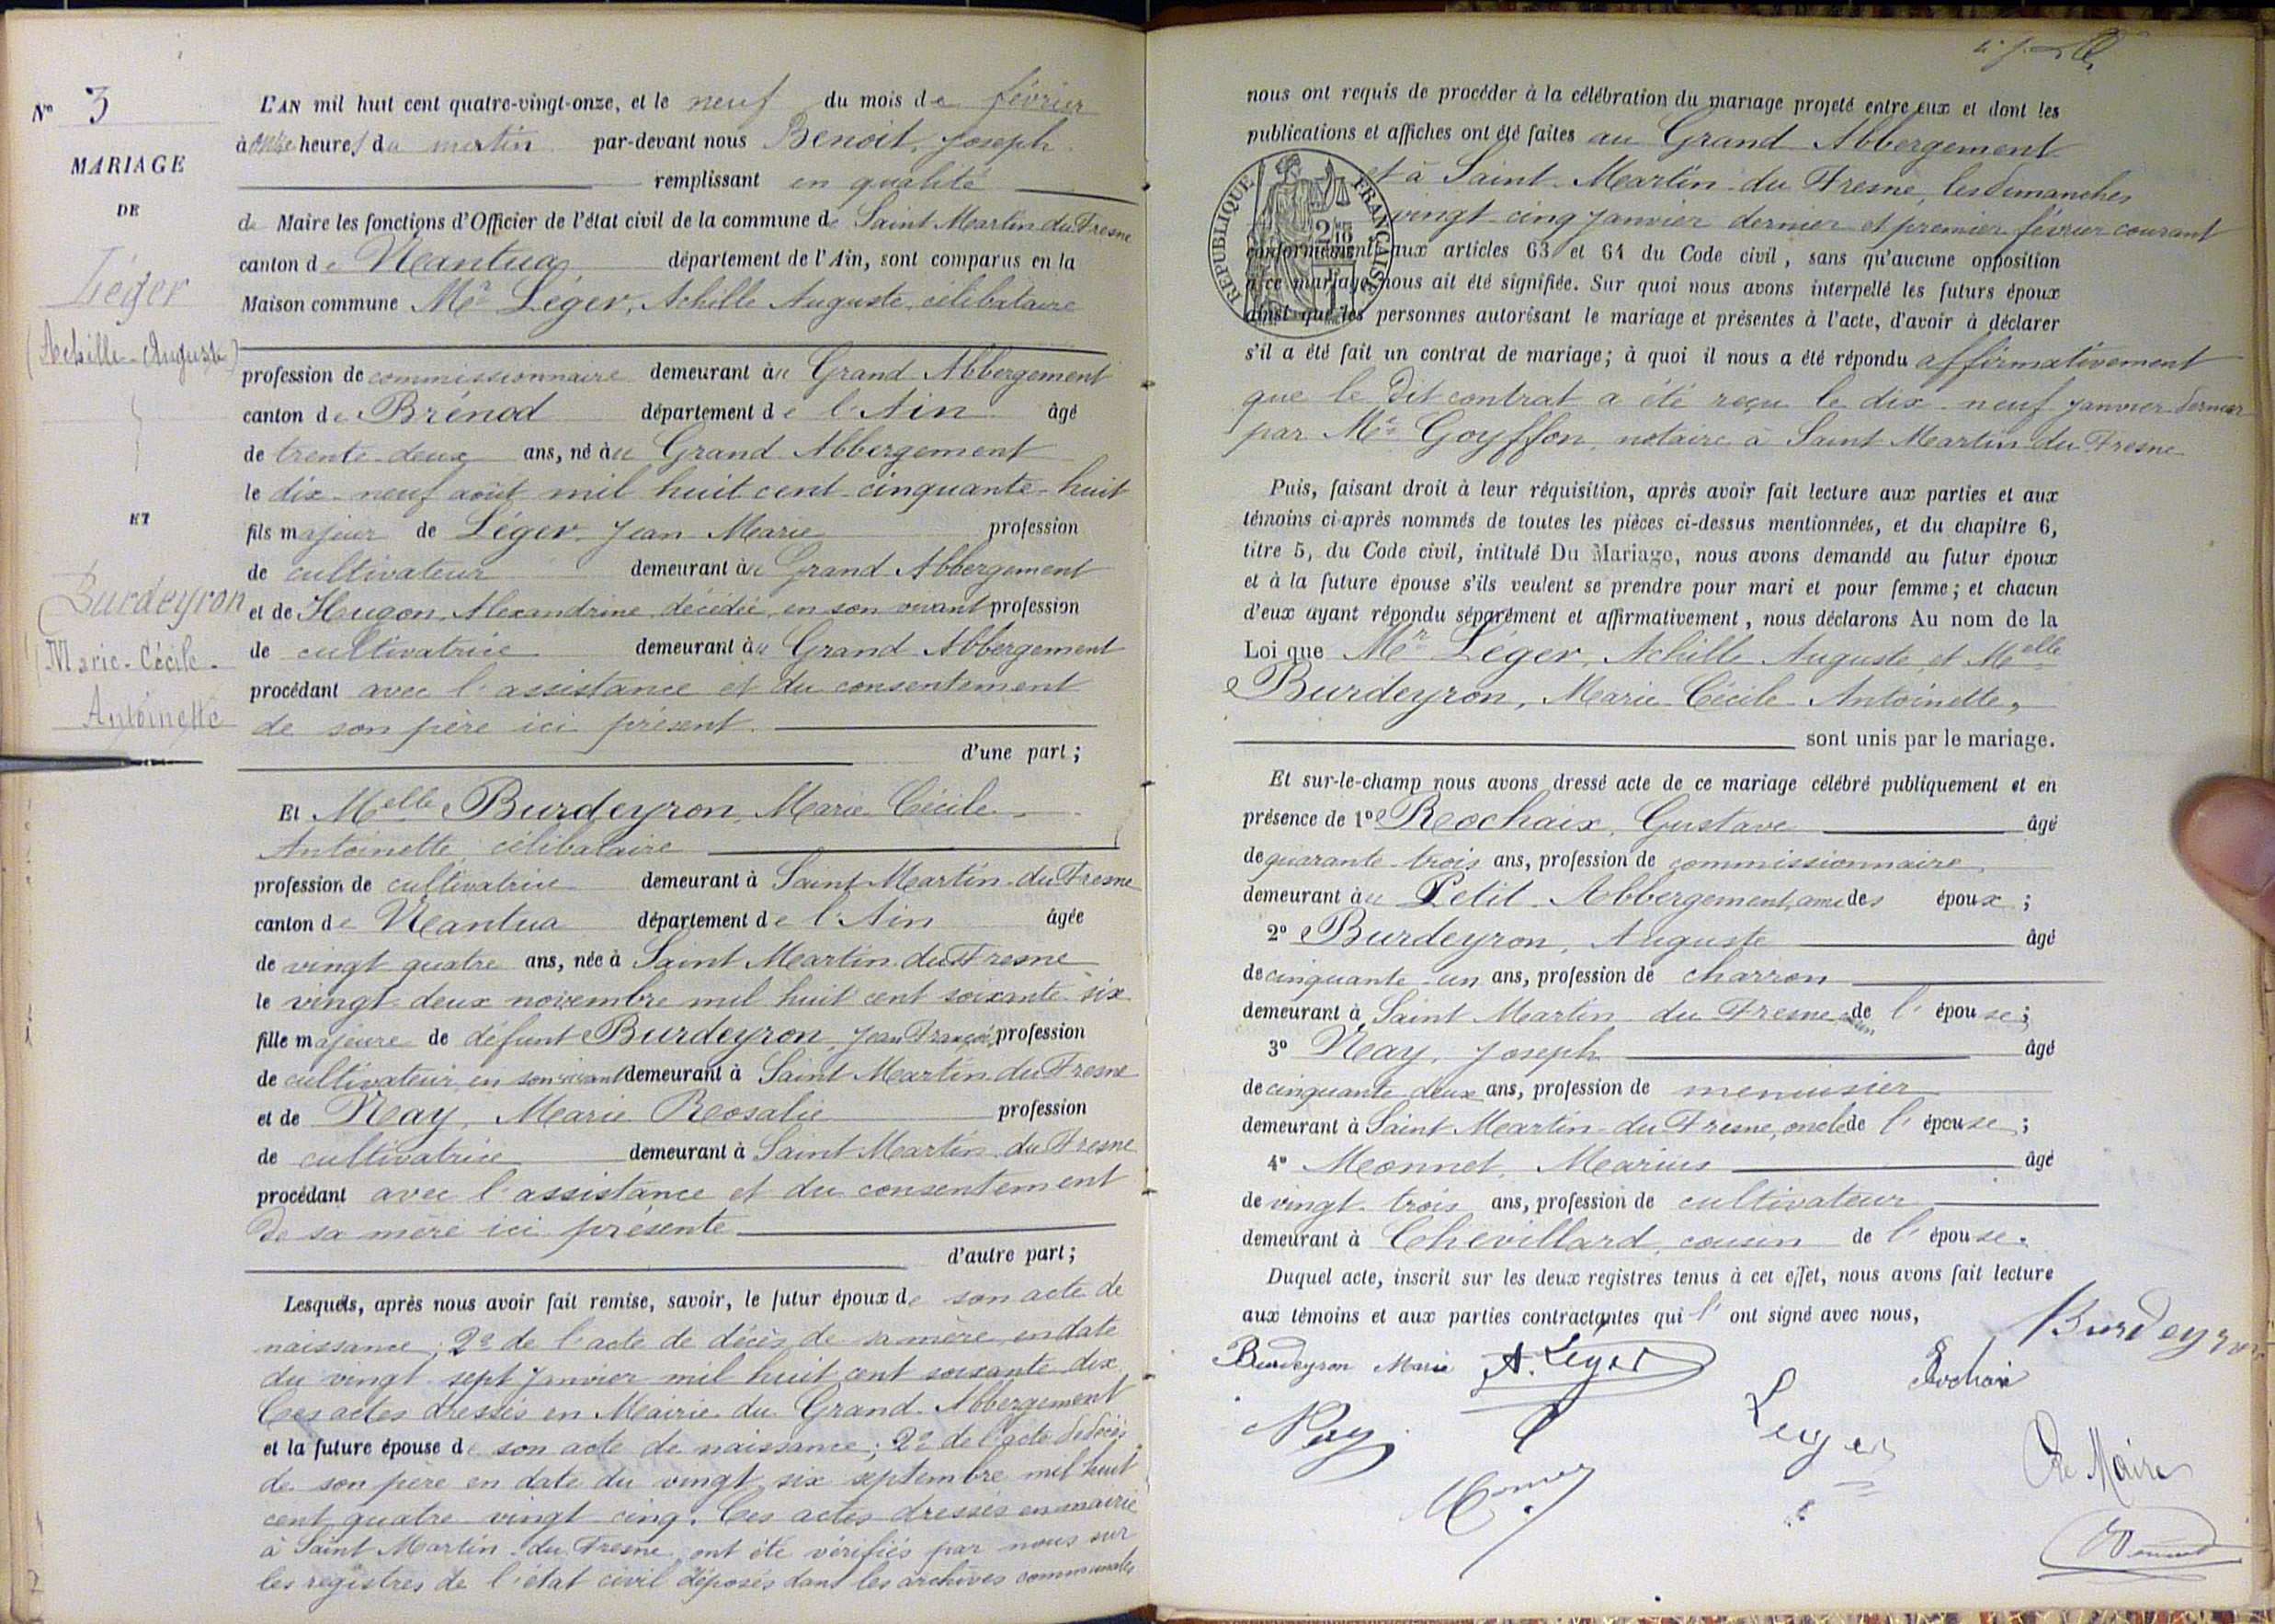 N° 3
MARIAGE
DE
Léger
(Achille-Auguste)
ET
Burdeyron
Marie-Cécile-
Antoinette
L'AN mil huit cent quatre-vingt-onze, et le neuf du mois de février
à onze heures du matin par-devant nous Benoit, Joseph
remplissant en qualité
de Maire les fonctions d'Officier de l'état civil de la commune de Saint Martin du Fresne
canton de Nantua département de l'Ain, sont comparus en la
Maison commune Mr Léger, Achille Auguste, célibataire
profession de commissionnaire demeurant au Grand Abbergement
canton de Brénod département de l'Ain âgé
de trente-deux ans, né au Grand Abbergement
le dix-neuf août mil huit cent cinquante-huit
fils majeur de Léger Jean Marie profession
de cultivateur demeurant au Grand Abbergement
et de Hugon, Alexandrine décédée, en son vivant profession
de cultivatrice demeurant au Grand Abbergement
procédant avec l'assistance et du consentement
de son père ici présent.
d'une part;
Et Melle Burdeyron, Marie Cécile
Antoinette célibataire
profession de cultivatrice demeurant à Saint Martin du Fresne
canton de Nantua département de l'Ain âgée
de vingt quatre ans, née à Saint Martin du Fresne
le vingt-deux novembre mil huit cent soixante six
fille majeure de défunt Burdeyron, Jean François, profession
de cultivateur en son vivant demeurant à Saint Martin du Fresne
et de Nay, Marie Rosalie profession
de cultivatrice demeurant à Saint Martin du Fresne
procédant avec l'assistance et du consentement
de sa mère ici présente
d'autre part;
Lesquels, après nous avoir fait remise, savoir, le futur époux de son acte de
naissance; 2° de l'acte de décès de sa mère, en date
du vingt sept Janvier mil huit cent soixante dix
Ces actes dressés en Mairie du Grand Abbergement
et la future épouse de son acte de naissance; 2° de l'acte de décès
de son père en date du vingt six septembre mil huit
cent quatre vingt cinq. Ces actes dressés en mairie
à Saint Martin du Fresne ont été vérifiés par nous sur
les registres de l'état civil déposés dans les archives communales
nous ont requis de procéder à la célébration du mariage projeté entre eux et dont les
publications et affiches ont été faites au Grand Abbergement
et à Saint Martin du Fresne, les dimanches
vingt cinq Janvier dernier et premier février courant
conformément aux articles 63 et 64 du Code civil, sans qu'aucune opposition
à ce mariage nous ait été signifiée. Sur quoi nous avons interpellé les futurs époux
ainsi que les personnes autorisant le mariage et présentes à l'acte, d'avoir à déclarer
REPUBLIQUE FRANÇAISE
s'il a été fait un contrat de mariage; à quoi il nous a été répondu affirmativement
que le dit contrat a été reçu le dix-neuf janvier dernier
par Me Goyffon, notaire à Saint Martin du Fresne
Puis, faisant droit à leur réquisition, après avoir fait lecture aux parties et aux
témoins ci-après nommés de toutes les pièces ci-dessus mentionnées, et du chapitre 6,
titre 5, du Code civil, intitulé Du Mariage, nous avons demandé au futur époux
et à la future épouse s'ils veulent se prendre pour mari et pour femme; et chacun
d'eux ayant répondu séparément et affirmativement, nous déclarons Au nom de la
Loi que Mr Léger, Achille Auguste et Melle
Burdeyron, Marie Cécile Antoinette,
sont unis par le mariage.
Et sur-le-champ nous avons dressé acte de ce mariage célébré publiquement et en
présence de 1° Rochaix, Gustave âgé
de quarante trois ans, profession de commissionnaire
demeurant au Petit Abbergement, ami des époux;
2° Burdeyron, Auguste âgé
de cinquante-un ans, profession de charron
demeurant à Saint Martin du Fresne de l'épouse;
3° Nay, Joseph âgé
de cinquante deux ans, profession de menuisier
demeurant à Saint Martin du Fresne, oncle de l'épouse;
4° Monnet, Marius âgé
de vingt trois ans, profession de cultivateur
demeurant à Chevillard, cousin de l'épouse.
Duquel acte, inscrit sur les deux registres tenus à cet effet, nous avons fait lecture
aux témoins et aux parties contractantes qui l'ont signé avec nous,
Burdeyron
Burdeyron Marie A. Leger Rochaix
Nay Leger
Le Maire